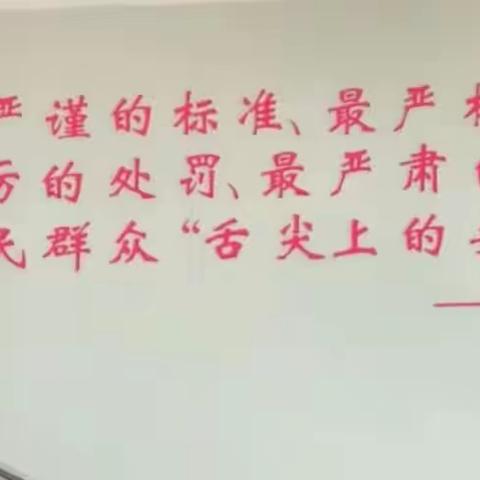 严谨的标准、最严格
厉的处罚、最严肃的
民群众“舌尖上的